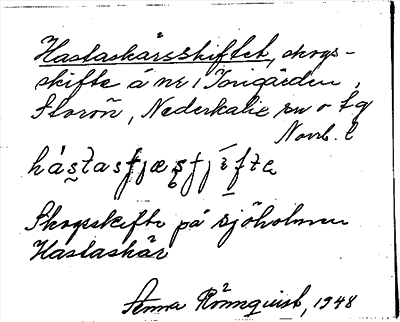 Hastaskärsskiftet, skogs-
skifte å nr 1 Jonigården,
Storön, Nederkalix sn o tg
Norrb. l
hástasfjæsfjífte
Skogsskifte på sjöholmen
Hastaskär
Anna Rönnquist, 1948